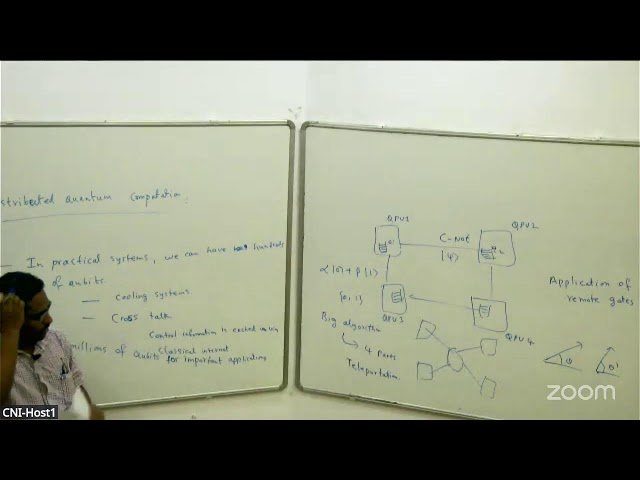 stributed Quantum Computation
— In practical systems, we can have hundreds
of qubits.
— cooling systems.
— Cross talk
Control information is
classical internet
millions of Qubits for important applications
QPU1
QPU2
C-Not
|ψ⟩
α|0⟩+β|1⟩
{0,1}
QPU3
QPU4
Big algorithm
↳ 4 Parts
Teleportation
Application of
remote gates
θ
θ'
zoom
CNI-Host1